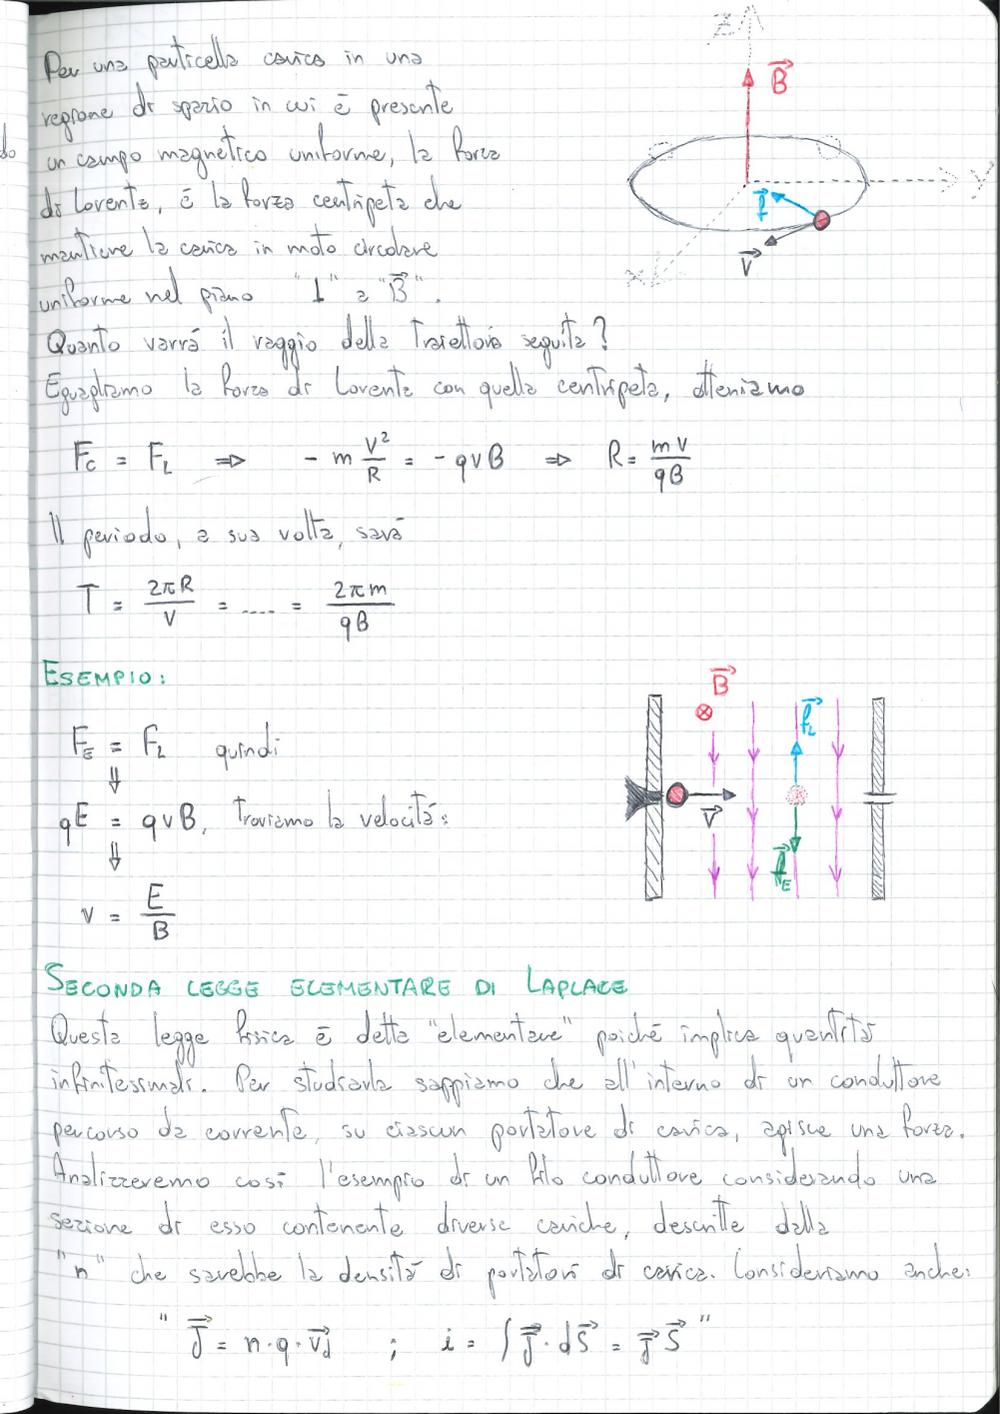 Per una particella carica in una
regione di spazio in cui è presente
un campo magnetico uniforme, la forza
di Lorentz, è la forza centripeta che
mantiene la carica in moto circolare
uniforme nel piano "⊥" a "B⃗".
Quanto varrà il raggio della traiettoria seguita?
Eguagliamo la forza di Lorentz con quella centripeta, otteniamo
F_C = F_L ⇒ - m V²/R = - qvB ⇒ R = mV/qB
Il periodo, a sua volta, sarà
T = 2πR/V = .... = 2πm/qB
Z
B⃗
Y
f⃗
V⃗
X
ESEMPIO:
F_E = F_L quindi
⇓
qE = qvB, Troviamo la velocità:
⇓
v = E/B
B⃗
f⃗_L
V⃗
f⃗_E
SECONDA LEGGE ELEMENTARE DI LAPLACE
Questa legge fisica è detta "elementare" poiché implica quantità
infinitessimali. Per studiarla sappiamo che all'interno di un conduttore
percorso da corrente, su ciascun portatore di carica, agisce una forza.
Analizzeremo così l'esempio di un filo conduttore considerando una
sezione di esso contenente diverse cariche, descritte dalla
"n" che sarebbe la densità di portatori di carica. Consideriamo anche:
" J⃗ = n·q·v⃗d ; i = ∫J⃗·dS⃗ = J⃗ S⃗ "